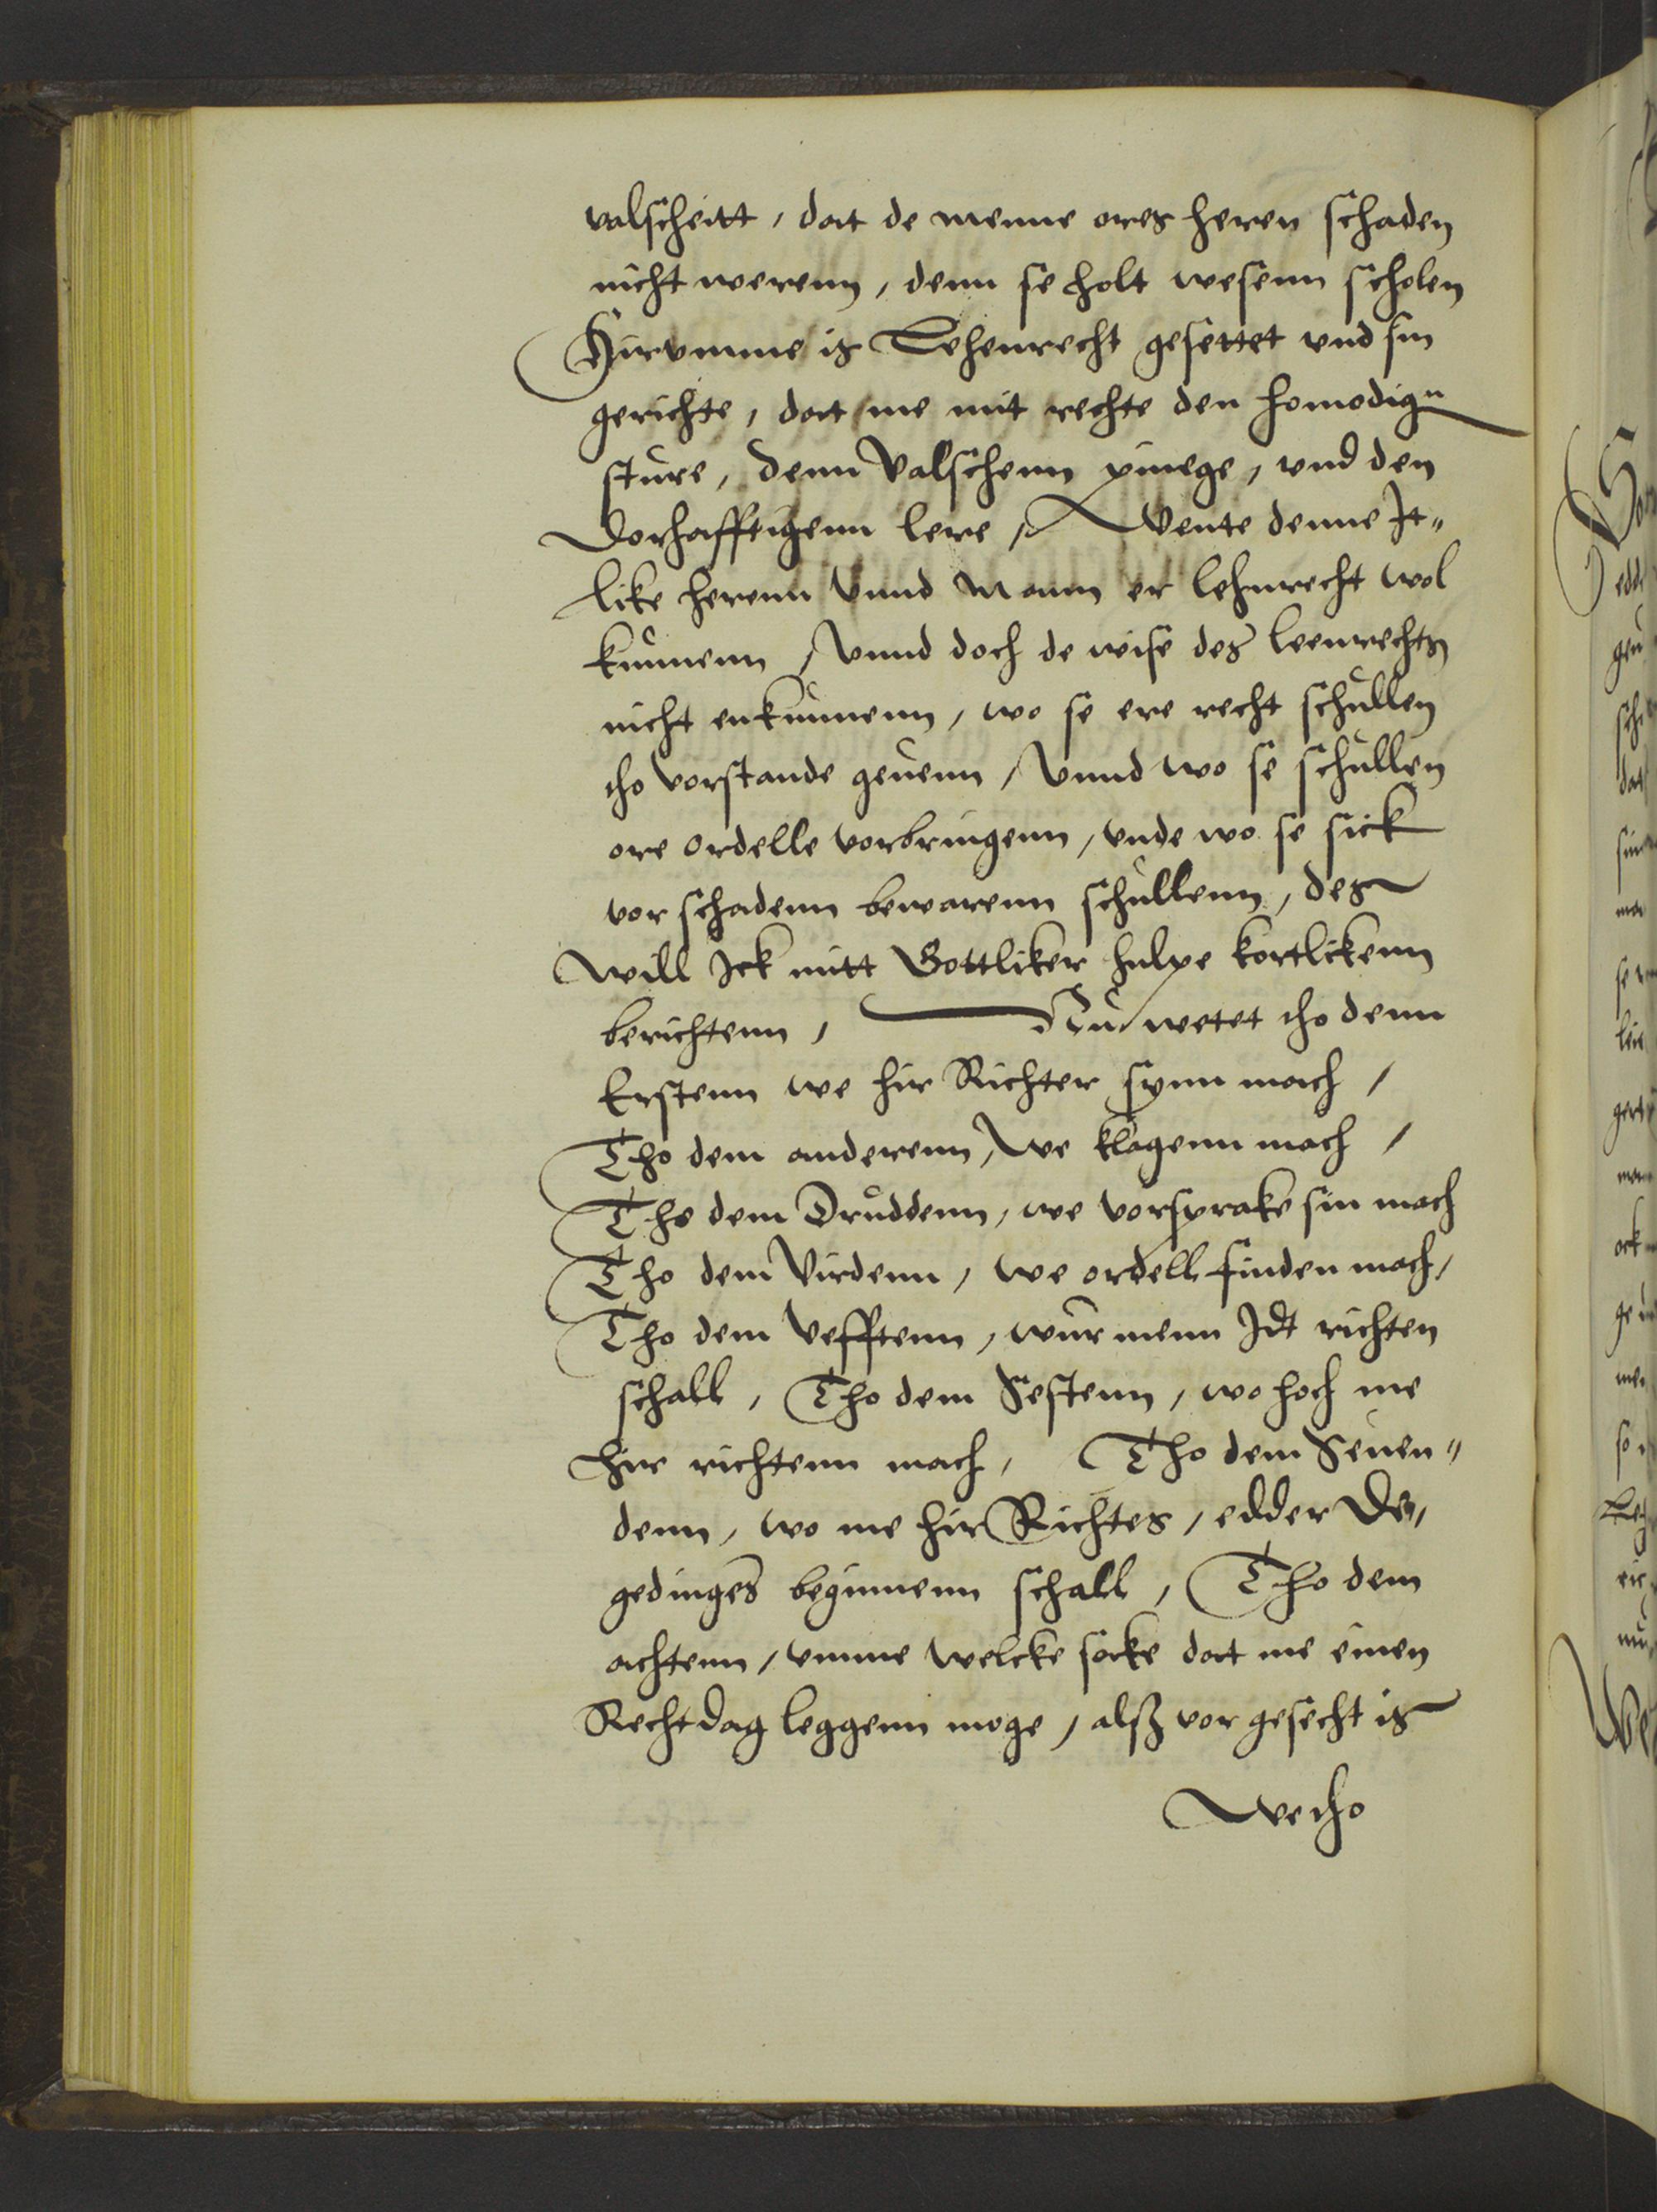 valscheitt, dat de menne ores heren schaden
nicht werenn, denn se holt wesenn scholen
Hirvmme is Lehenrecht gesettet vnd sin
gerichte, dat me mit rechte den homodign
sture, denn Valschenn pinege, vnd den
Dorhafftigenn lere, Wente denne It„
like herenn Vnnd Mann er lehnrecht wol
kunnenn, Vnnd doch de wise des leenrechts
nicht enkunnenn, wo se ere recht schullen
tho vorstande geuenn, Vnnd wo se schullen
ore ordelle vorbringenn, vnde wo se sick
vor schadenn bewarenn schullenn, des
Will Ick mitt Gottliker hulpe kortlikenn
berichtenn, Nu wetet tho denn
Erstenn we hir Richter synn mach,
Tho dem anderenn, we klagenn mach,
Tho dem Druddenn, we vorsprake sin mach
Tho dem Virdenn, we ordell finden mach,
Tho dem Vefftenn, wur menn Idt richten
schall, Tho dem Sestenn, wo hoch me
hir richtenn mach, Tho dem Seuen„
denn, wo me hir Richtes, edder De„
gedinges beginnenn schall, Tho dem
achtenn, vmme welcke sacke dat me einen
Rechtdag leggenn moge, alsz vor gesecht is
We tho